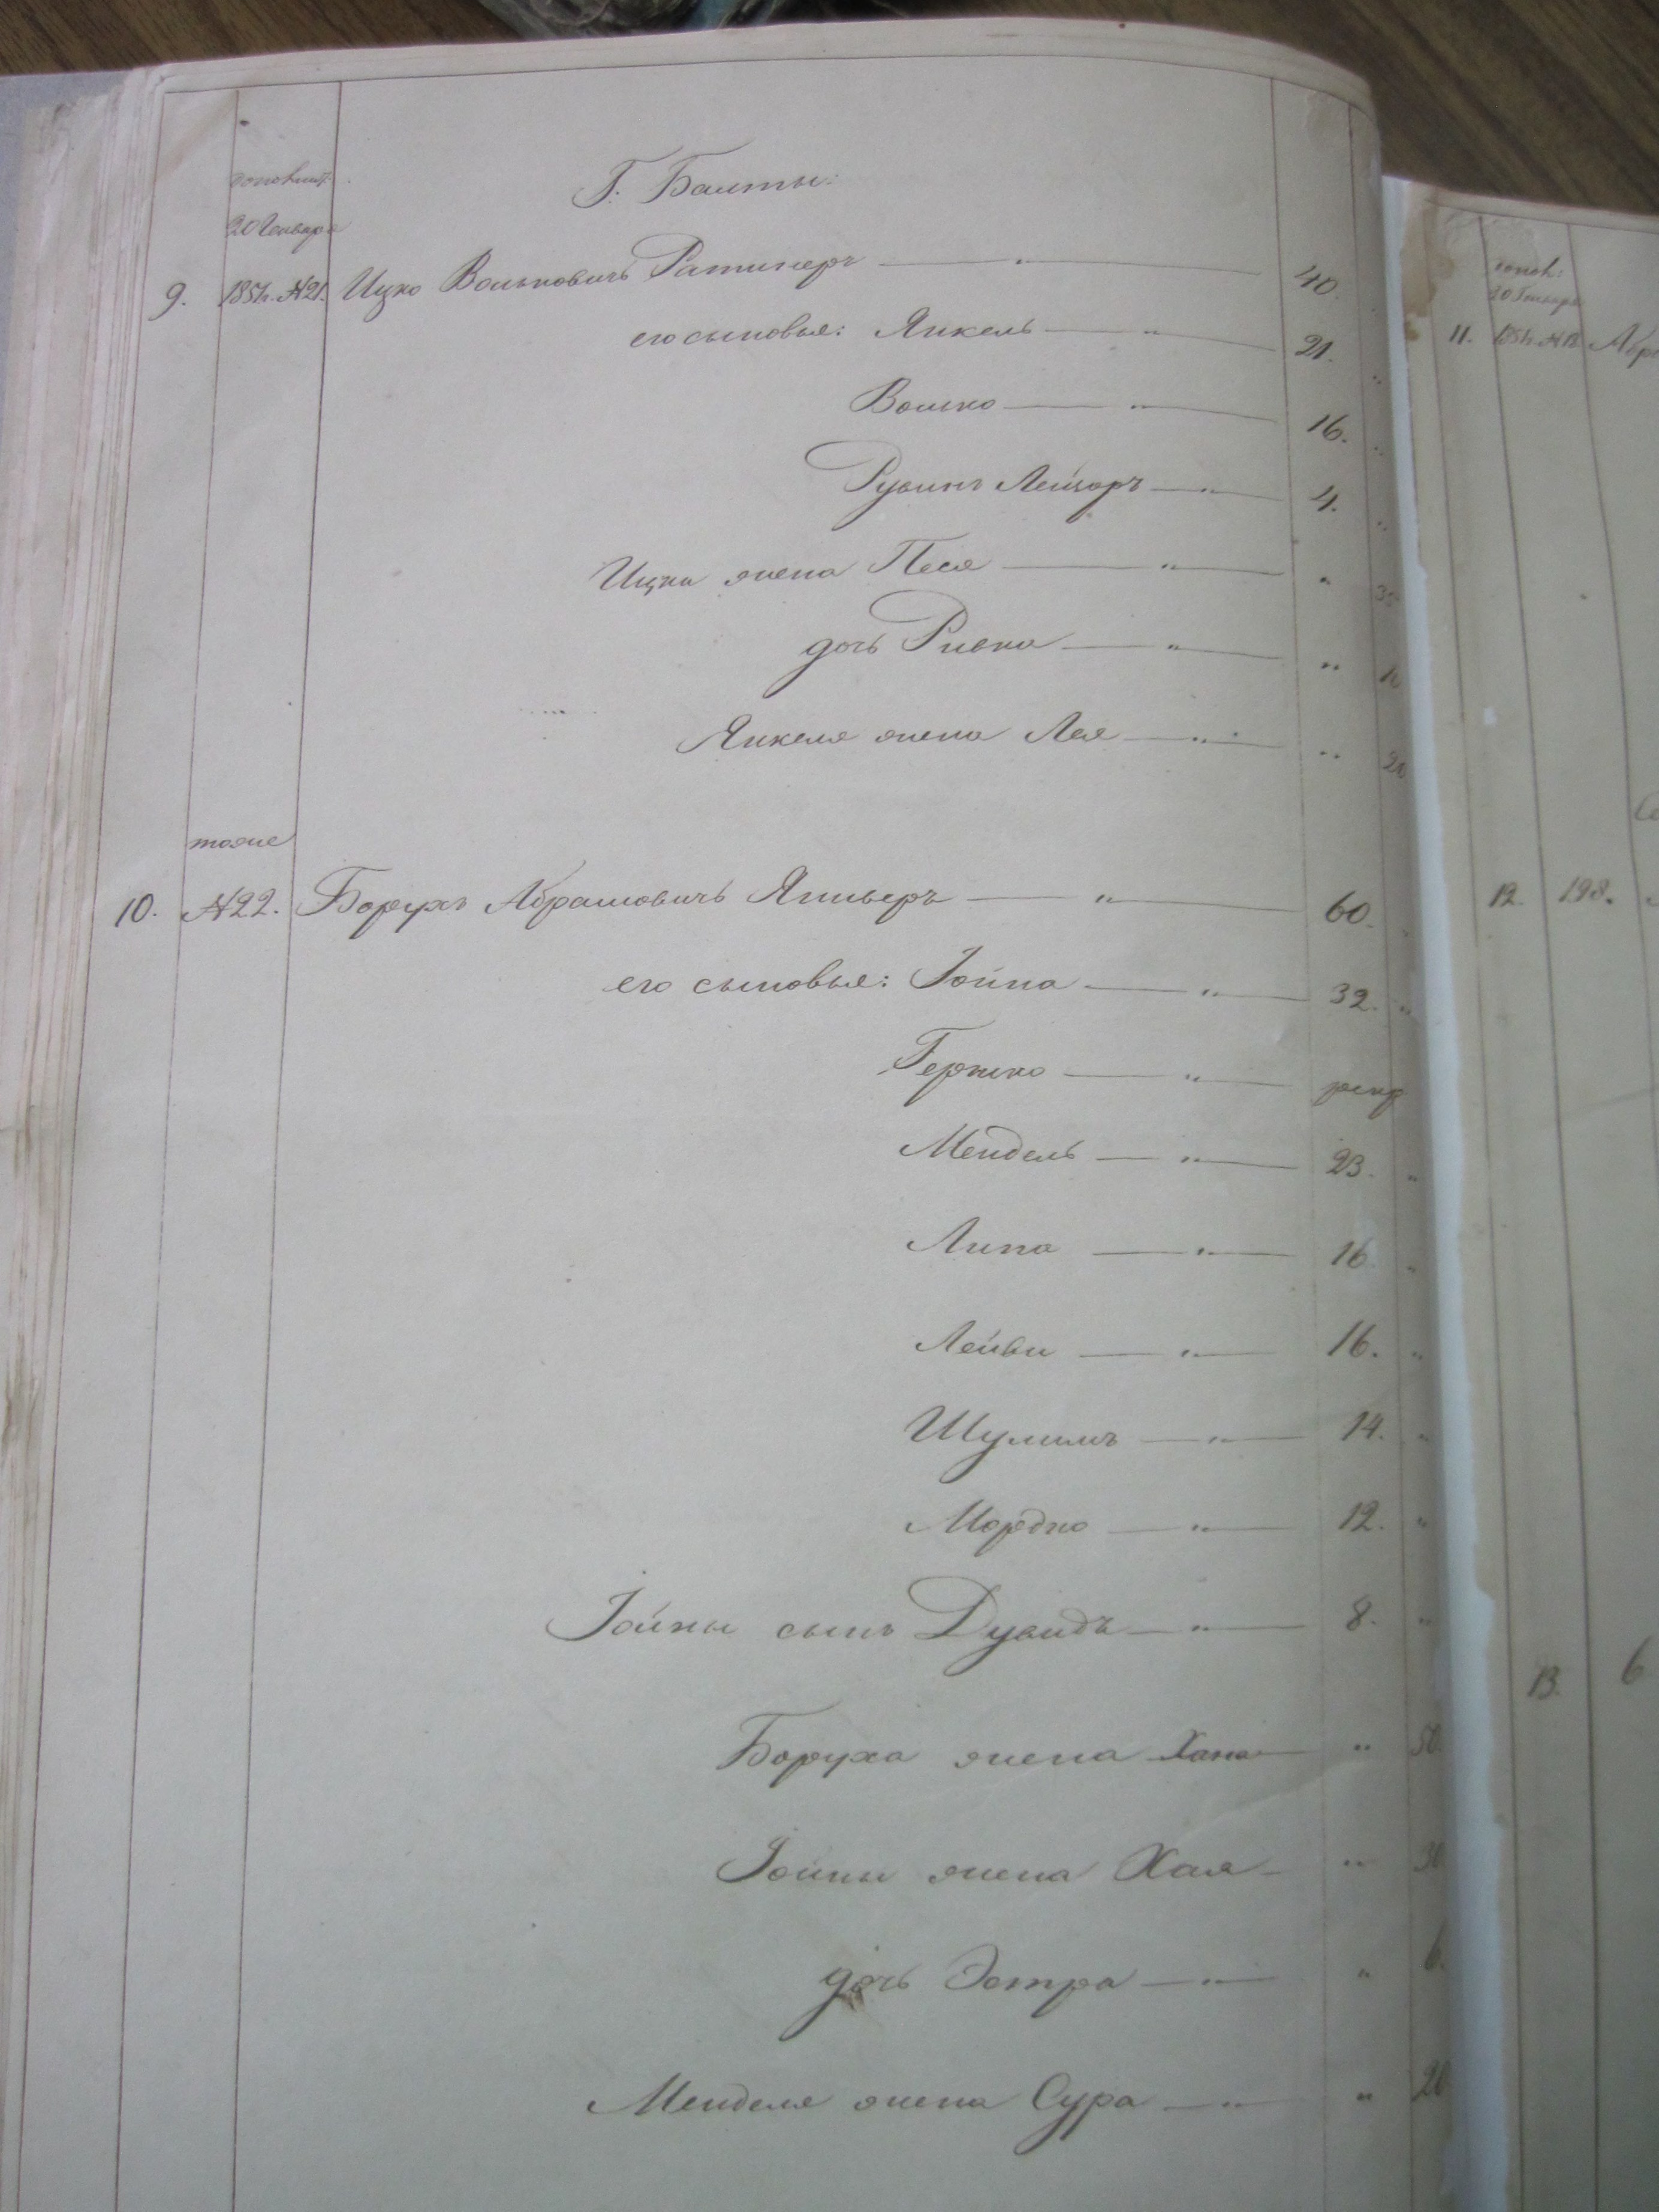 Г. Балты:
дополнит.
20 Генваря
9. 185 №21. Ицко Вольковичъ Ратинеръ — " — 40.
его сыновья: Янкель — " — 21.
Волько — " — 16.
Рувинъ Лейзоръ — " — 4.
Ицки жена Песя — " — "
дочь Ривка — " — "
Янкеля жена Лея — " — " 20
тоже
10. №22. Борухъ Абрамовичъ — " — 60.
его сыновья: Іойна — " — 32. "
Гершко — " — рекр
Мендель — " — 23. "
Липа — " — 16 "
Лейви — " — 16. "
Шулимъ — " — 14. "
Мордко — " — 12. "
Іойны сынъ Дувидъ — " — 8. "
Боруха жена Хана — " 50
Іойны жена Хая — " 30
дочь Эстра — " — " 6.
Менделя жена Сура — " — " 20
11.
12. 198.
13. 6